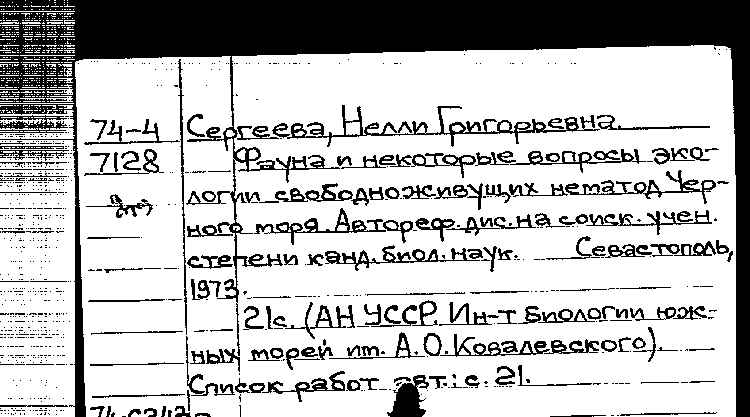 74-4 Сергеева, Нелли Григорьевна.
7128 Фауна и некоторые вопросы эко-
логии свободноживущих нематод Чер-
ного моря. Автореф. дис. на соиск. учен.
степени канд. биол. наук. Севастополь,
1973.
21с. (АН УССР. Ин-т биологии юж-
ных морей им. А.О. Ковалевского).
Список работ авт.: с. 21.